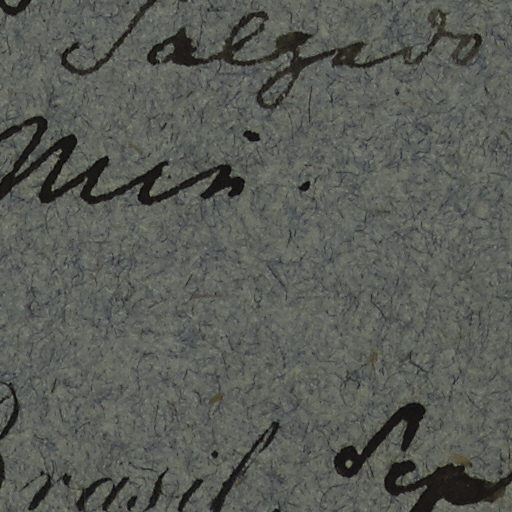 Salgado
Min.
Brasil. Sep